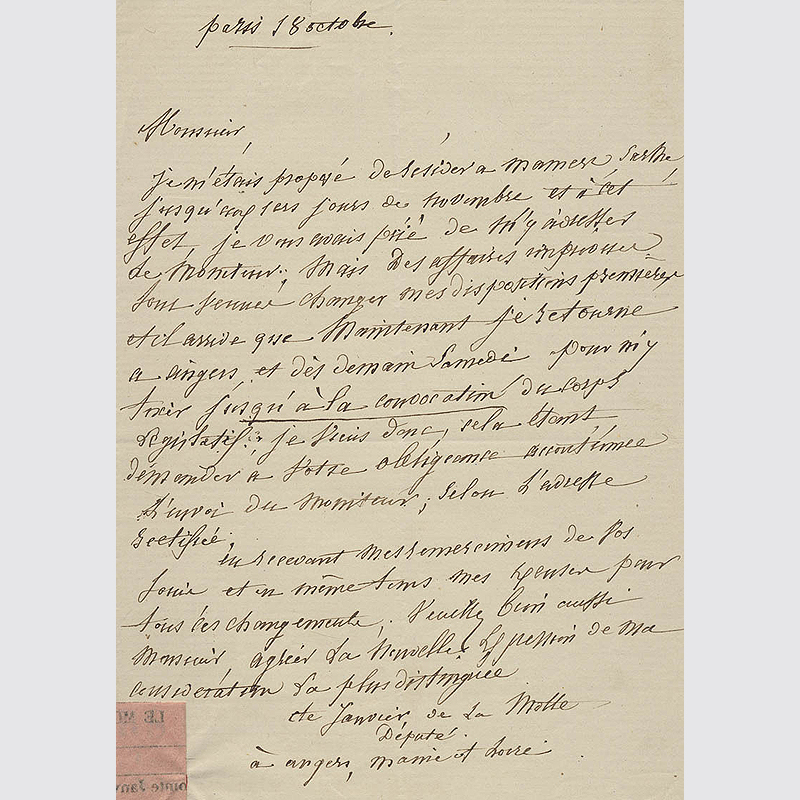 paris 18 octobre.
Monsieur
je m'étais proposé de résider a mamers, Sarthe
jusqu'aux 1ers jours de novembre et à cet
effet, je vous avais prié de m'y adresser
le Moniteur; Mais des affaires imprévues
sont venues changer mes dispositions premières
et il arrive que Maintenant je retourne
a angers, et dès demain Samedi pour m'y
fixer jusqu'à la convocation du corps
Législatif; je viens donc, cela étant
demander a votre obligeance accoutumée
L'envoi du Moniteur; selon L'adresse
rectifiée.
en recevant mes remerciemens de vos
soins et en même tems mes excuses pour
tous ces changements, Veuillez bien aussi
Monsieur, agréer La Nouvelle Expression de Ma
considération La plus distinguée
cte Janvier de La Motte
Député.
à angers, maine et Loire
LE MO
omte Janv